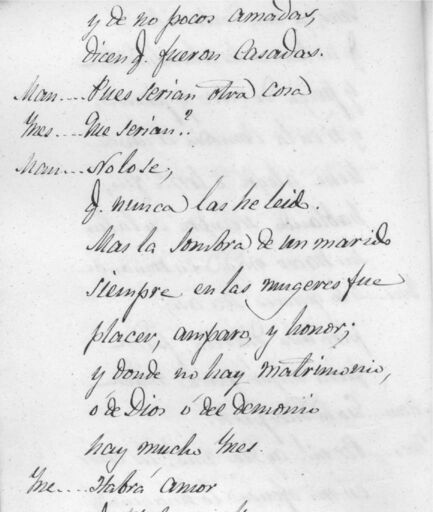 y de no pocos amadas,
dicen q. fueron Casadas.
Man.... Pues serian otra cosa
Ynes.... Que serian?
Man.... No lo se,
q. nunca las he leido.
Mas la sombra de un marido
siempre en las mugeres fue
placer, amparo, y honor;
y donde no hay matrimonio,
ó de Dios ó del demonio
hay mucho Ynes.
Yne.... Habrá amor